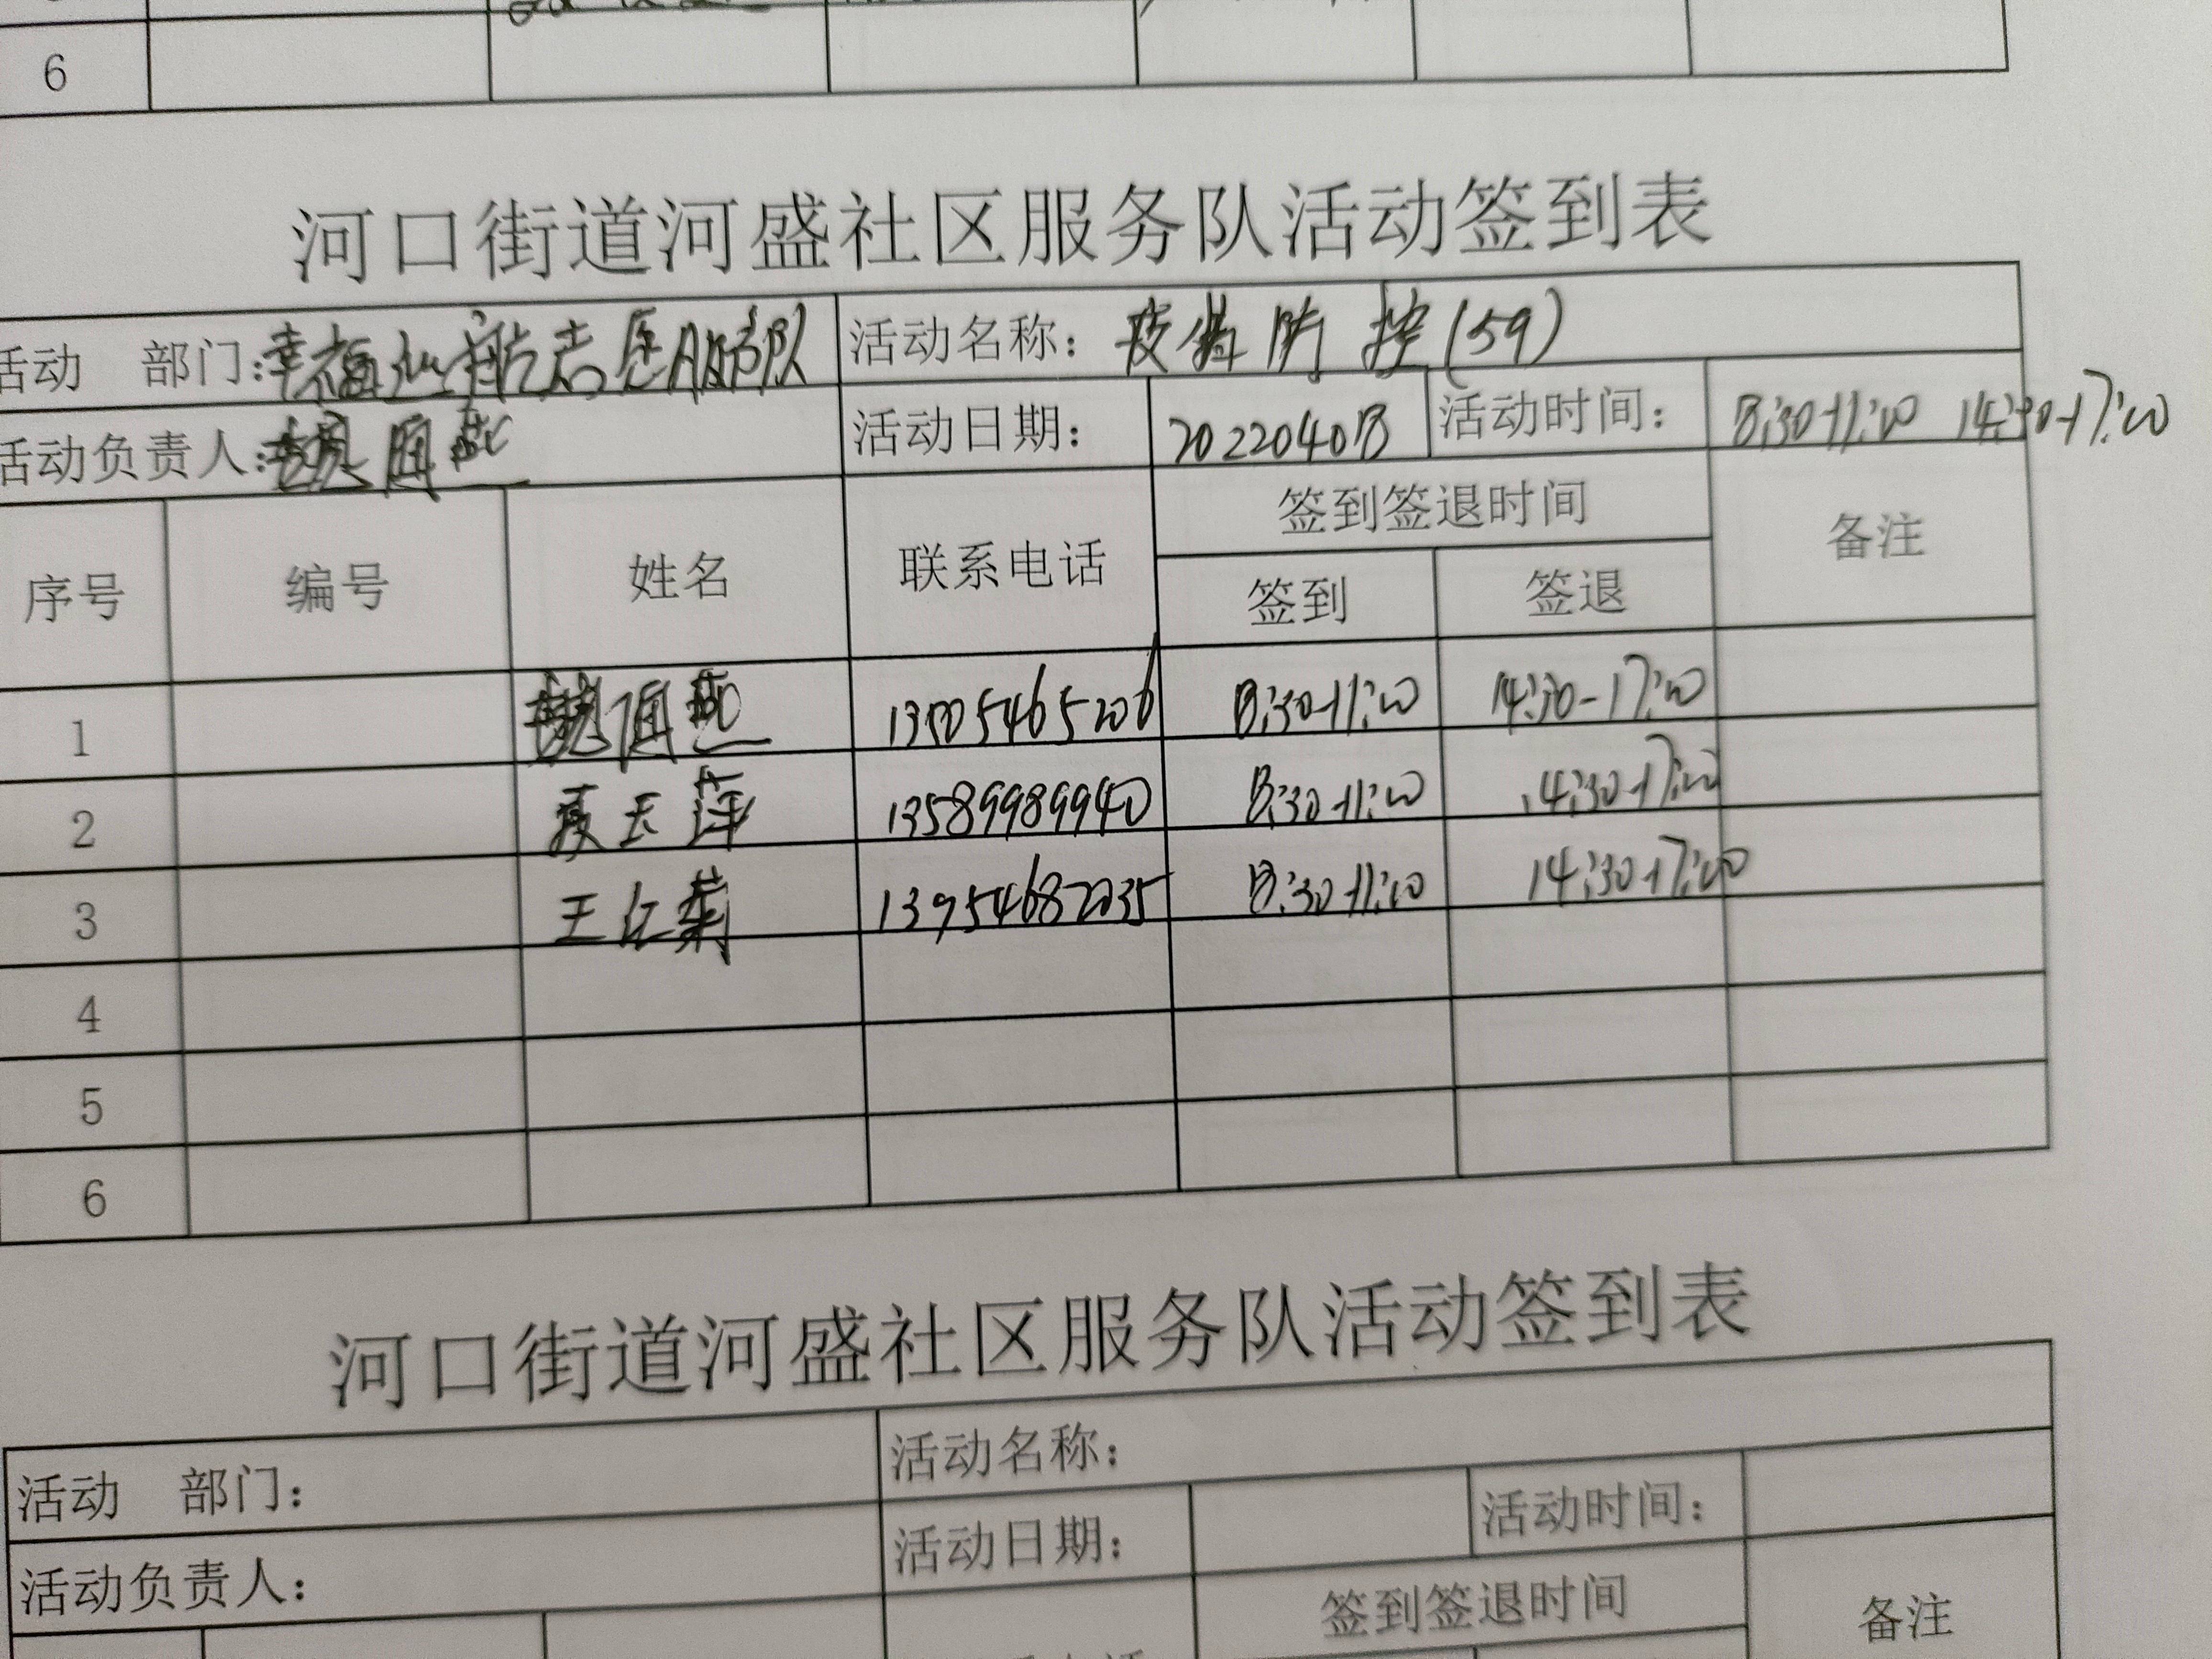 6
河口街道河盛社区服务队活动签到表
活动 部门:幸福巡航志愿服务队 活动名称: 疫情防控(59)
活动负责人: 活动日期: 活动时间: 8:30-11:00 14:30-17:00
序号 编号 姓名 联系电话 签到签退时间 备注
签到 签退
1 8:30-11:00 14:30-17:00
2 13589989940 8:30-11:00 14:30-17:00
3 王红菊 13954687035 8:30-11:00 14:30-17:00
4
5
6
河口街道河盛社区服务队活动签到表
活动 部门: 活动名称:
活动负责人: 活动日期: 活动时间:
签到签退时间 备注